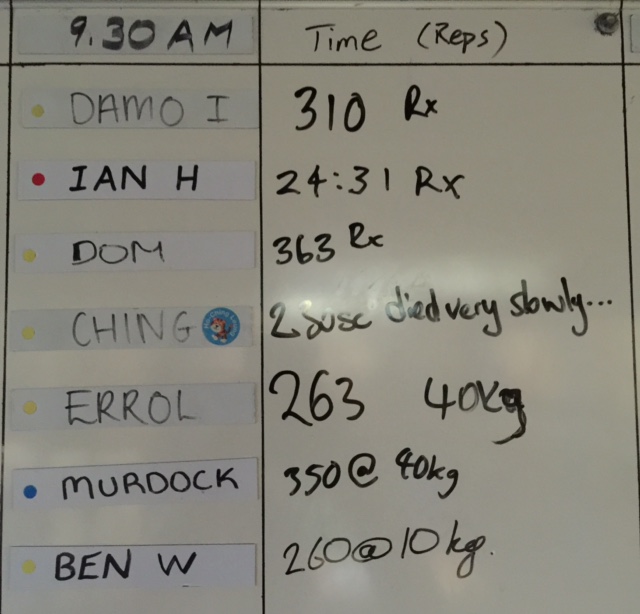 9.30 AM Time (Reps)
DAMO I 310 Rx
IAN H 24:31 Rx
DOM 363 Rx
CHING died very slowly...
ERROL 263 40kg
MURDOCK 350@ 40kg
BEN W 260@10kg.